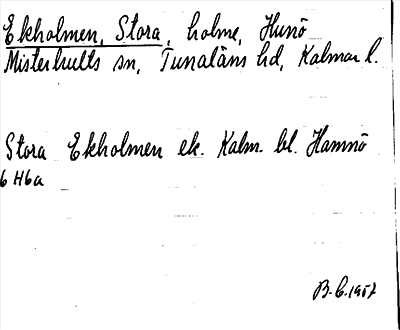 Ekholmen, Stora, holme, Hunö
Misterhults sn, Tunaläns hd, Kalmar l.
Stora Ekholmen ek. Kalm. bl. Hamnö
6 H6a
B.C.1957